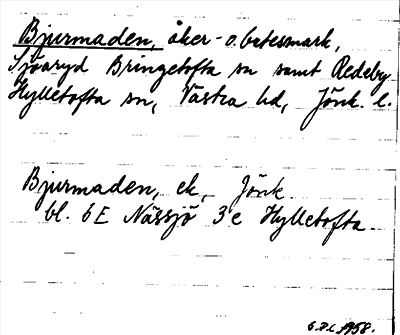 Bjurmaden, åker- o. betesmark,
Sjöaryd Bringetofta sn samt Redeby
Hylletofta sn, Västra hd, Jönk. l.
Bjurmaden, ek, Jönk.
bl. 6E Nässjö 3 e Hylletofta.
1958.